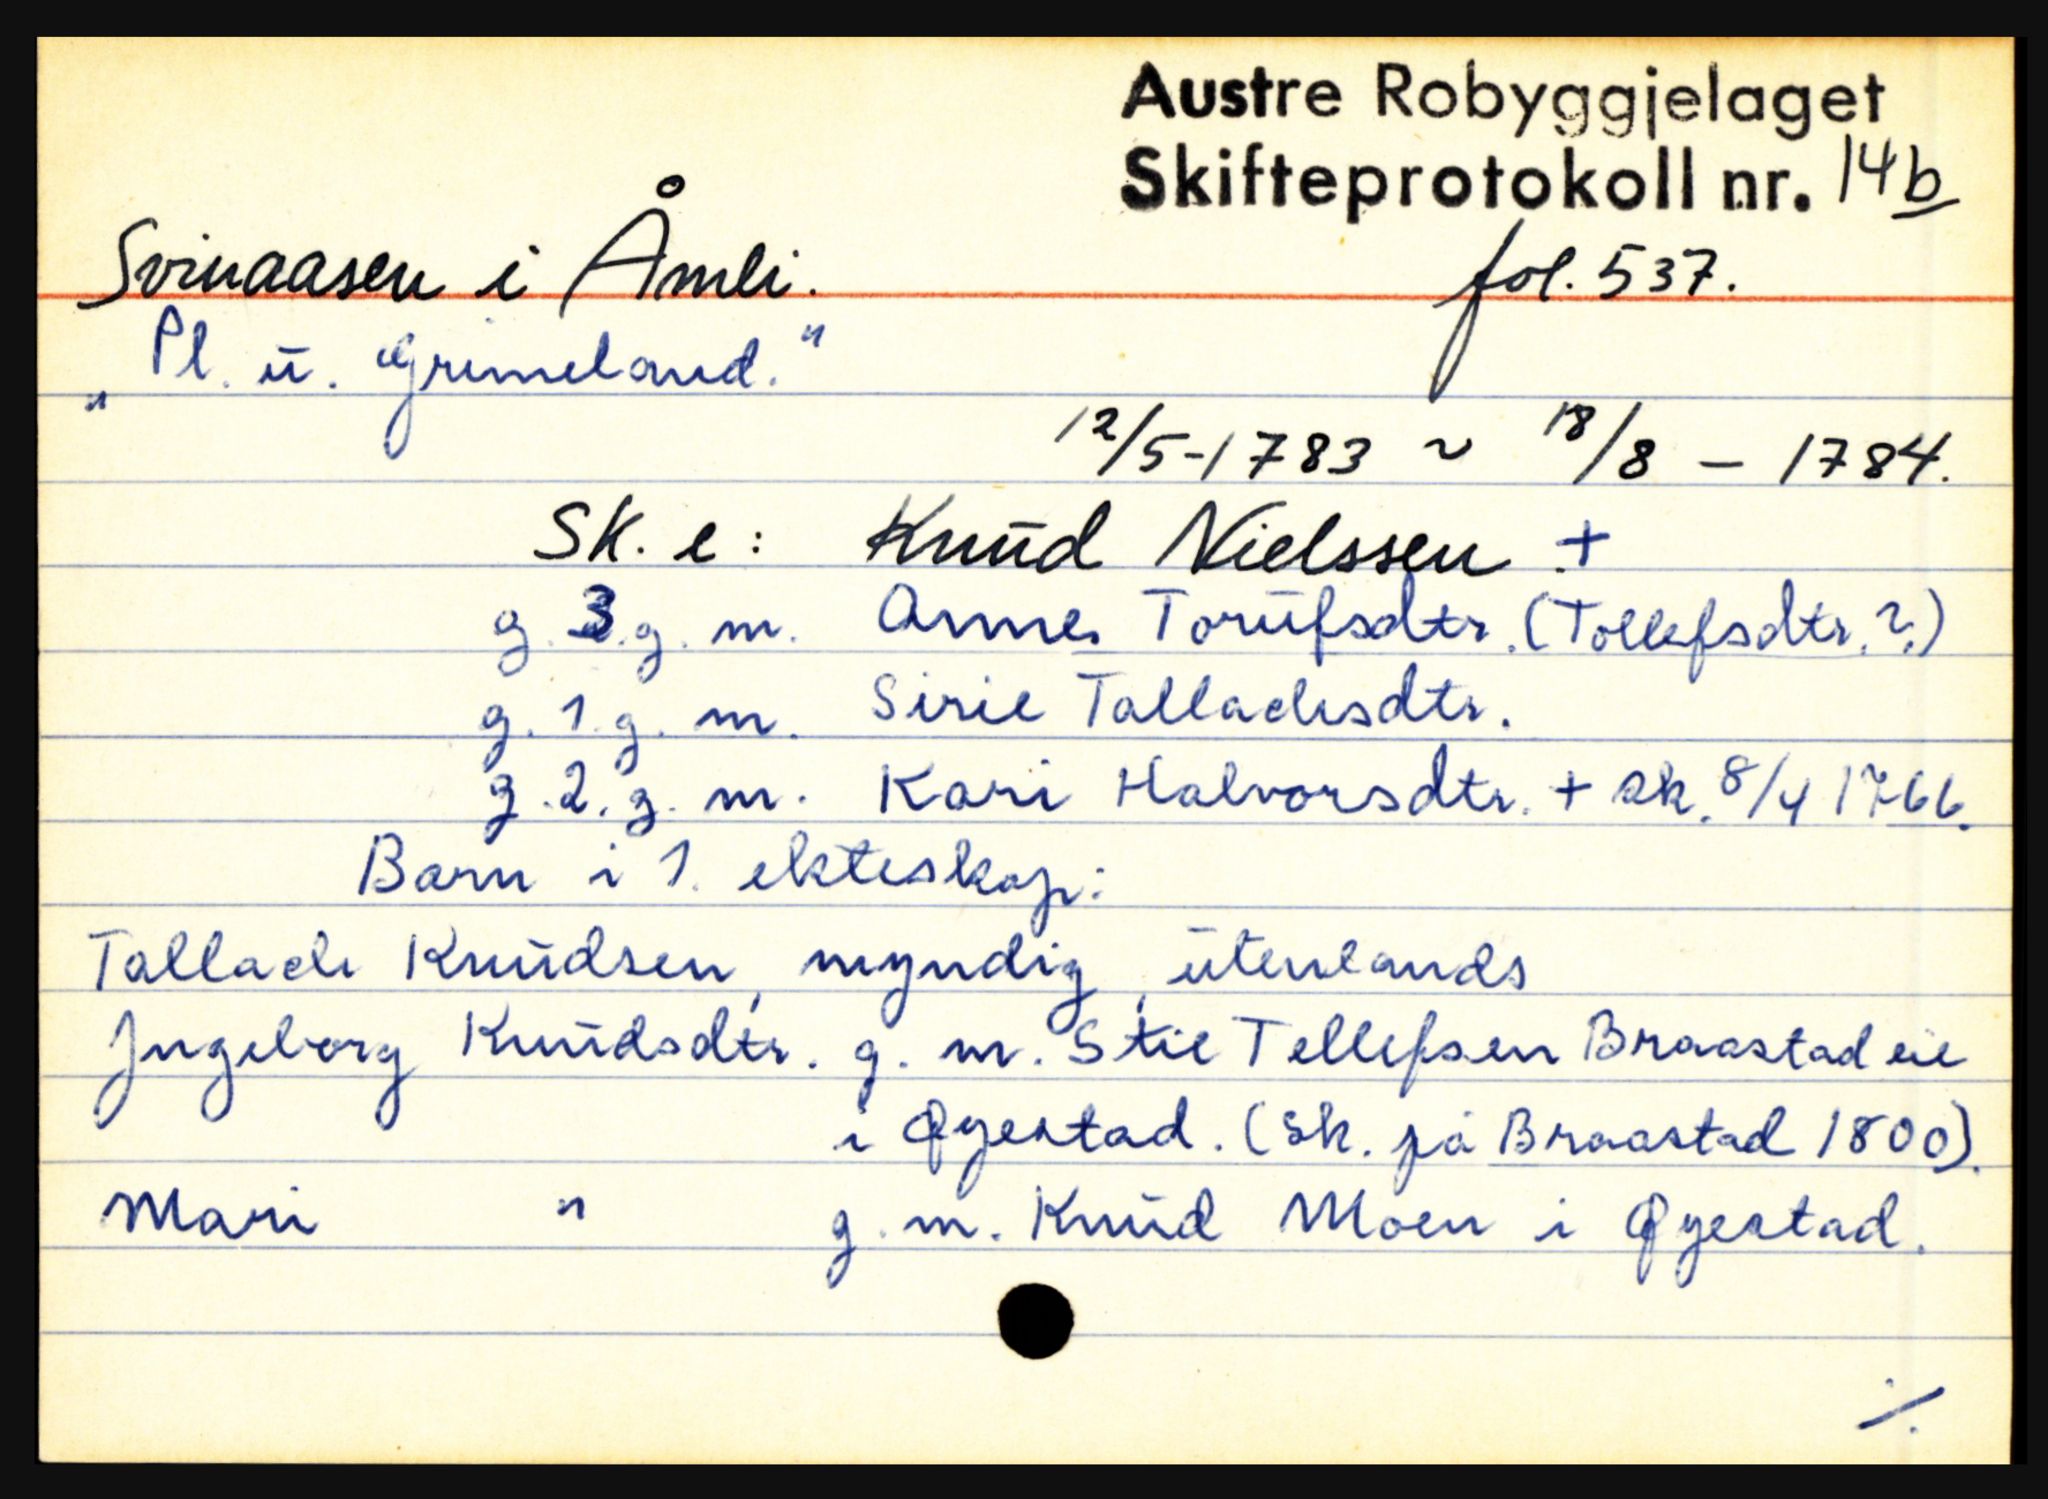 Austre Robyggjelaget
Skifteprotokoll nr. 14b
Svinaasen i Åmli. fol. 537.
"Pl. u. Grimeland."
12/5-1783 ~ 18/8 - 1784.
Sk. e: Knud Nielssen +
g. 3. g. m. Anne Torufsdtr. (Tollefsdtr.?)
g. 1. g. m. Sirie Tallachsdtr.
g. 2. g. m. Kari Halvorsdtr. + sk. 8/4 1766.
Barn i 1. ekteskap:
Tallach Knudsen, myndig, utenlands
Ingeborg Knudsdtr. g. m. Stie Tellefsen Braastad eie
i Øyestad. (Sk. på Braastad 1800).
Mari " g. m. Knud Moen i Øyestad.
./.